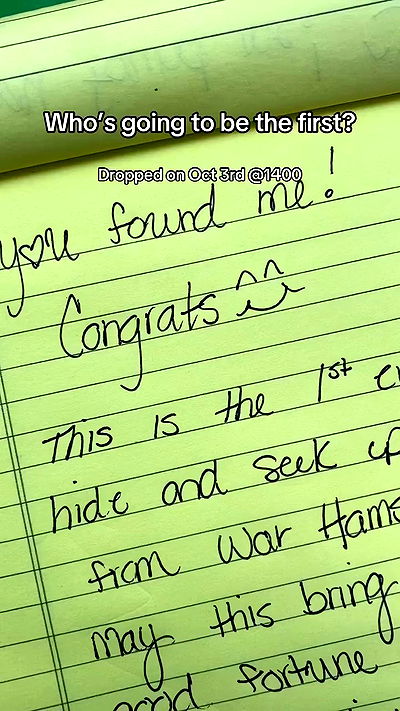 Who's going to be the first?
Dropped on Oct 3rd @1400
you found me!
Congrats
This is the 1st
hide and seek
from War
may this bring
good fortune